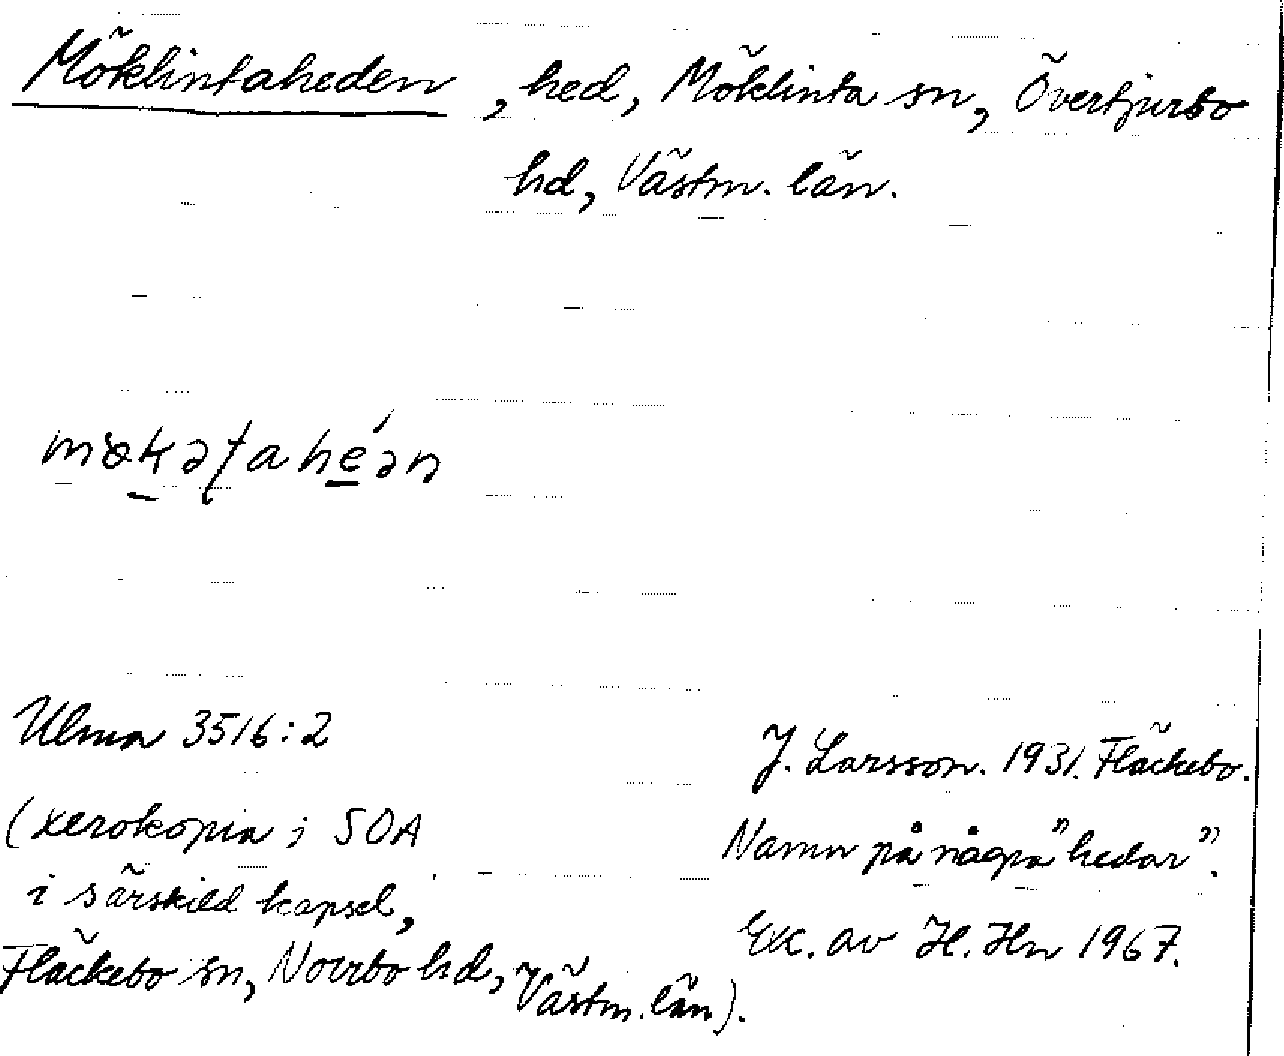 Möklintaheden, hed, Möklinta sn, Övertjurbo
hd, Västm. län.
Ulma 3516:2
(xerokopia i SOA
i särskild kapsel,
Fläckebo sn, Norrbo hd, Västm. län).
J. Larsson. 1931. Fläckebo.
Namn på några "hedar".
Exc. av H. Hn 1967.